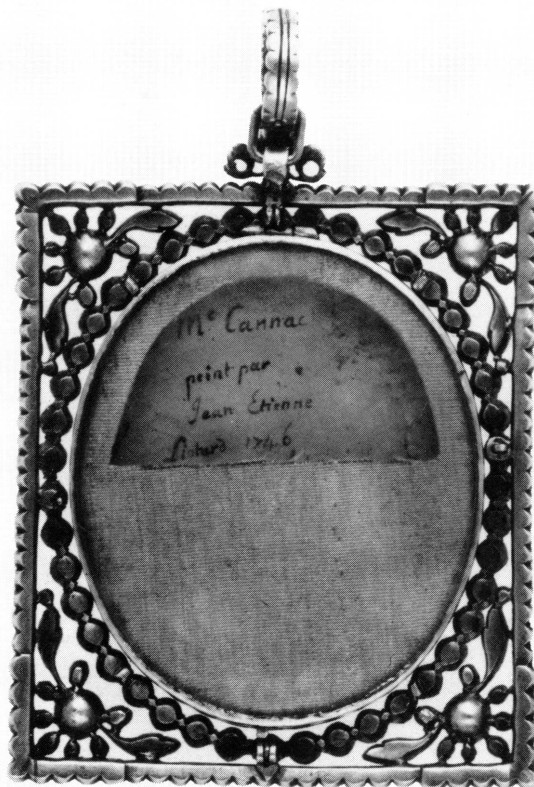 Me Cannac
peint par
Jean Etienne
Liotard 1746